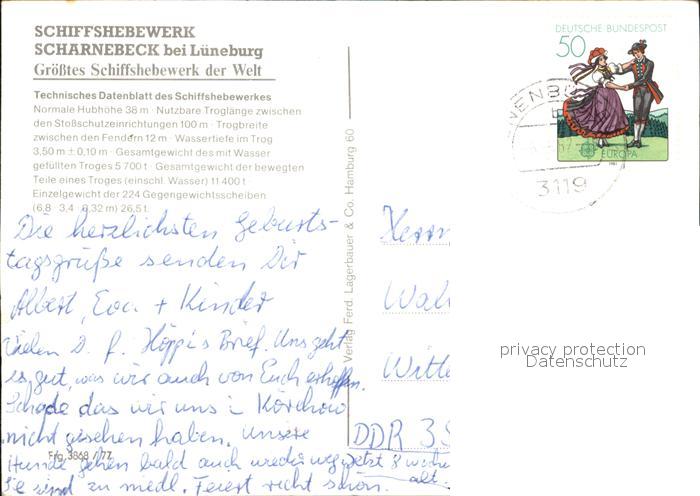 SCHIFFSHEBEWERK
SCHARNEBECK bei Lüneburg
Größtes Schiffshebewerk der Welt
Technisches Datenblatt des Schiffshebewerkes
Normale Hubhöhe 38 m · Nutzbare Troglänge zwischen
den Stoßschutzeinrichtungen 100 m · Trogbreite
zwischen den Fendern 12 m · Wassertiefe im Trog
3,50 m ± 0,10 m · Gesamtgewicht des mit Wasser
gefüllten Troges 5 700 t · Gesamtgewicht der bewegten
Teile eines Troges (einschl. Wasser) 11 400 t
Einzelgewicht der 224 Gegengewichtsscheiben
(6,8 · 3,4 · 0,32 m) 26,5 t.
Die herzlichsten Geburts-
tagsgrüße senden Dir
Albert, Eva + Kinder
Vielen D. f. Brief. Uns geht
es gut, was wir auch von Euch erhoffen.
Schade das wir uns i. Körchow
nicht gesehen haben. Unsere
Hunde gehen bald auch wieder weg jetzt 8 Woche
alt.
Sie sind zu niedl. Feiert recht schön.
Frg. 3868 / 77
Verlag Ferd. Lagerbauer & Co. Hamburg 60
Herrn
Wal
Witte
DDR 3
DEUTSCHE BUNDESPOST
50
EUROPA
1981
3119
privacy protection
Datenschutz